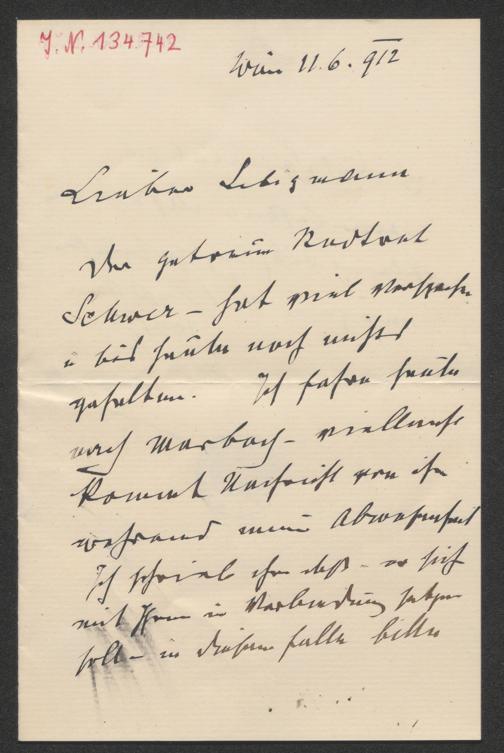 J. N. 134.742
Wien 11.6.912
Lieber Seligmann
Der getreue Stadtrat
Schwer – hat viel versprochen
u bis heute noch nichts
gehalten. Ich fahre heute
nach Marbach – vielleicht
kommt Nachricht von ihm
während meiner Abwesenheit
Ich schrieb ihm daß – er sich
mit Ihnen in Verbindung setzen
soll – in diesem Falle bitte